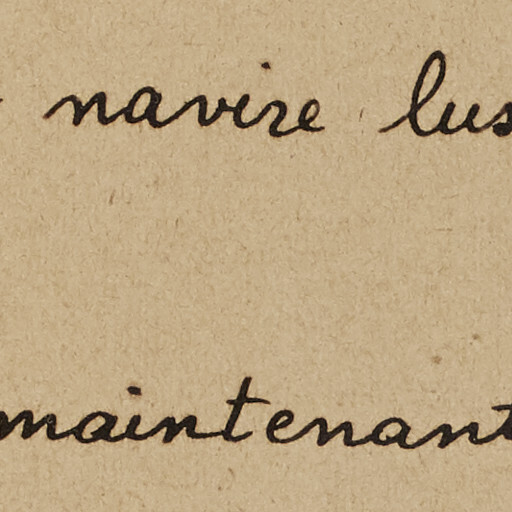 navire lus
maintenant